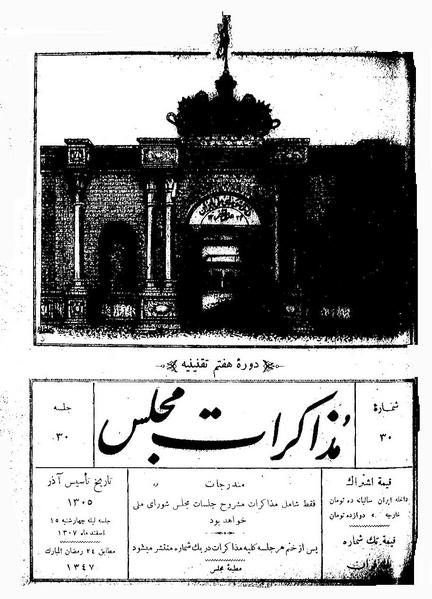 دورهٔ هفتم تقنینیه
شمارهٔ
۳۰
مذاکرات مجلس
جلسه
۳۰
قیمة اشتراک
داخله ایران سالیانه ده تومان
خارجه » دوازده تومان
قیمة تک شماره
ران
مندرجات
فقط شامل مذاکرات مشروح جلسات مجلس شورای ملی
خواهد بود
پس از ختم هر جلسه کلیه مذاکرات در یک شماره منتشر میشود
مطبعهٔ مجلس
تاریخ تأسیس آذر
۱۳۰۵
جلسه لیله چهارشنبه ۱۵
اسفند ماه ۱۳۰۷
مطابق ۲۴ رمضان المبارک
۱۳۴۷